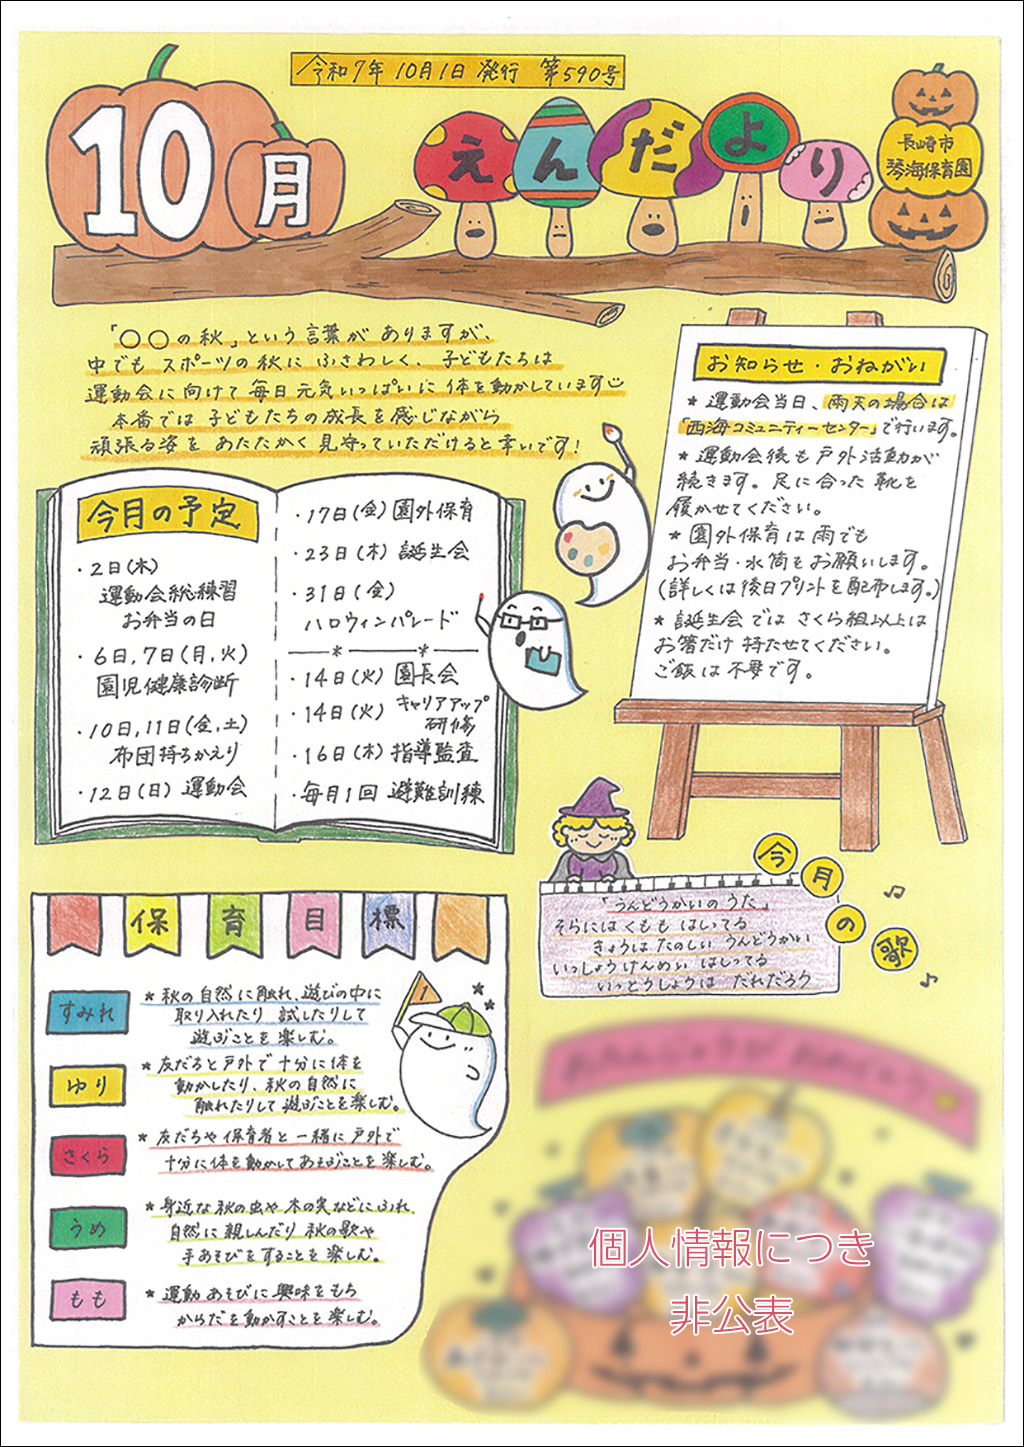 令和7年 10月1日 発行 第590号
10月
えんだより
長崎市
琴海保育園
「〇〇の秋」という言葉がありますが、
中でも スポーツの秋に ふさわしく、子どもたちは
運動会に向けて毎日元気いっぱいに 体を動かしています
本番では 子どもたちの成長を感じながら
頑張る姿を あたたかく見守っていただけると幸いです!
お知らせ・おねがい
* 運動会当日、雨天の場合は
「西海コミュニティーセンター」で行います。
* 運動会後も戸外活動が
続きます。足に合った靴を
履かせてください。
* 園外保育は雨でも
お弁当・水筒をお願いします。
(詳しくは後日プリントを配布します。)
* 誕生会では さくら組以上は
お箸だけ 持たせてください。
ご飯は不要です。
今月の予定
・2日(木)
運動会総練習
お弁当の日
・6日,7日(月,火)
園児健康診断
・10日,11日(金,土)
布団持ちかえり
・12日(日) 運動会
・17日(金)園外保育
・23日(木) 誕生会
・31日(金)
ハロウィンパレード
・14日(火) 園長会
・14日(火) キャリアアップ
研修
・16日(木) 指導監査
・毎月1回 避難訓練
今月の歌
「うんどうかいのうた」
そらにはくもも はしってる
きょうはたのしい うんどうかい
いっしょうけんめい はしってる
いっとうしょうは だれだろう
保育目標
すみれ
* 秋の自然に触れ、遊びの中に
取り入れたり 試したりして
遊ぶことを楽しむ。
ゆり
* 友だちと戸外で十分に体を
動かしたり、秋の自然に
触れたりして遊ぶことを楽しむ。
さくら
* 友だちや保育者と一緒に戸外で
十分に体を動かしてあそぶことを楽しむ。
うめ
* 身近な秋の虫や木の実などにふれ、
自然に親しんだり秋の歌や
手あそびをすることを楽しむ。
もも
* 運動あそびに興味をもち
からだを動かすことを楽しむ。
1
個人情報につき
非公表